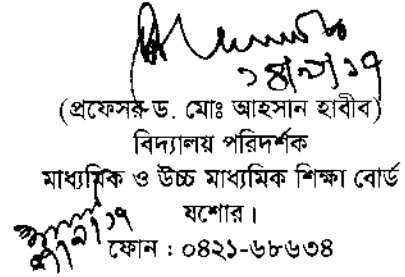 ১৪/২/১৭
(প্রফেসর ড. মোঃ আহসান হাবীব)
বিদ্যালয় পরিদর্শক
মাধ্যমিক ও উচ্চ মাধ্যমিক শিক্ষা বোর্ড
যশোর।
ফোন : ০৪২১-৬৮৬৩৪